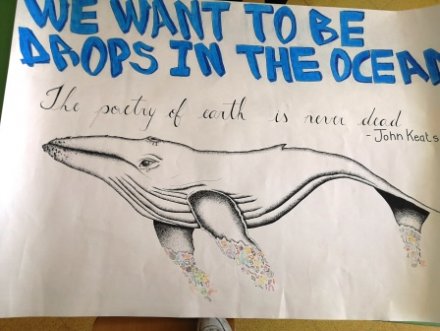 WE WANT TO BE
DROPS IN THE OCEAN
The poetry of earth is never dead
- John Keats